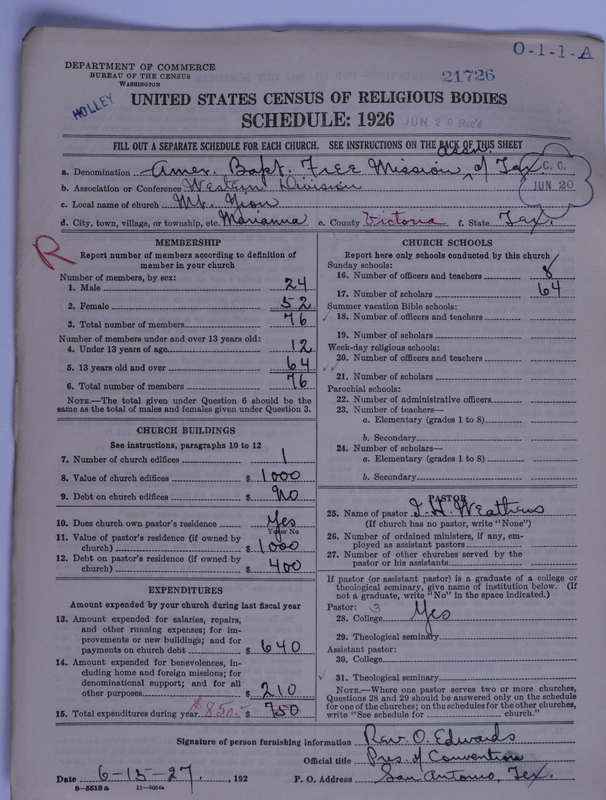 O-1-1-A
DEPARTMENT OF COMMERCE
BUREAU OF THE CENSUS
WASHINGTON
21726
HOLLEY
UNITED STATES CENSUS OF RELIGIOUS BODIES
SCHEDULE: 1926
JUN 20 Rec'd
FILL OUT A SEPARATE SCHEDULE FOR EACH CHURCH. SEE INSTRUCTIONS ON THE BACK OF THIS SHEET
Assn.
a. Denomination Amer. Bapt. Free Mission of Tex.
C. C.
JUN 20
b. Association or Conference Western Division
c. Local name of church Mt. Zion
d. City, town, village, or township, etc. Marianna e. County Victoria f. State Tex.
R
MEMBERSHIP
Report number of members according to definition of
member in your church
Number of members, by sex:
1. Male 24
2. Female 52
3. Total number of members 76
Number of members under and over 13 years old:
4. Under 13 years of age 12
5. 13 years old and over 64
6. Total number of members 76
NOTE.—The total given under Question 6 should be the
same as the total of males and females given under Question 3.
CHURCH BUILDINGS
See instructions, paragraphs 10 to 12
7. Number of church edifices 1
8. Value of church edifices $ 1000
9. Debt on church edifices $ No
10. Does church own pastor's residence Yes
Yes or No
11. Value of pastor's residence (if owned by
church) $ 1000
12. Debt on pastor's residence (if owned by
church) $ 400
EXPENDITURES
Amount expended by your church during last fiscal year
13. Amount expended for salaries, repairs,
and other running expenses; for im-
provements or new buildings; and for
payments on church debt $ 640
14. Amount expended for benevolences, in-
cluding home and foreign missions; for
denominational support; and for all
other purposes $ 210
15. Total expenditures during year $850.- $ 750
CHURCH SCHOOLS
Report here only schools conducted by this church
Sunday schools:
16. Number of officers and teachers 8
17. Number of scholars 64
Summer vacation Bible schools:
18. Number of officers and teachers
19. Number of scholars
Week-day religious schools:
20. Number of officers and teachers
21. Number of scholars
Parochial schools:
22. Number of administrative officers
23. Number of teachers—
a. Elementary (grades 1 to 8)
b. Secondary
24. Number of scholars—
a. Elementary (grades 1 to 8)
b. Secondary
PASTOR
25. Name of pastor
(If church has no pastor, write "None")
26. Number of ordained ministers, if any, em-
ployed as assistant pastors
27. Number of other churches served by the
pastor or his assistants
If pastor (or assistant pastor) is a graduate of a college or
theological seminary, give name of institution below. (If
not a graduate, write "No" in the space indicated.)
Pastor: 3
28. College Yes
29. Theological seminary
Assistant pastor:
30. College
31. Theological seminary
NOTE.—Where one pastor serves two or more churches,
Questions 28 and 29 should be answered only on the schedule
for one of the churches; on the schedules for the other churches,
write "See schedule for church."
Signature of person furnishing information Rev. O. Edwards
Official title Pres. of Convention
Date 6-15-27, 192 P. O. Address San Antonio, Tex.
8-5518a 11-9054a